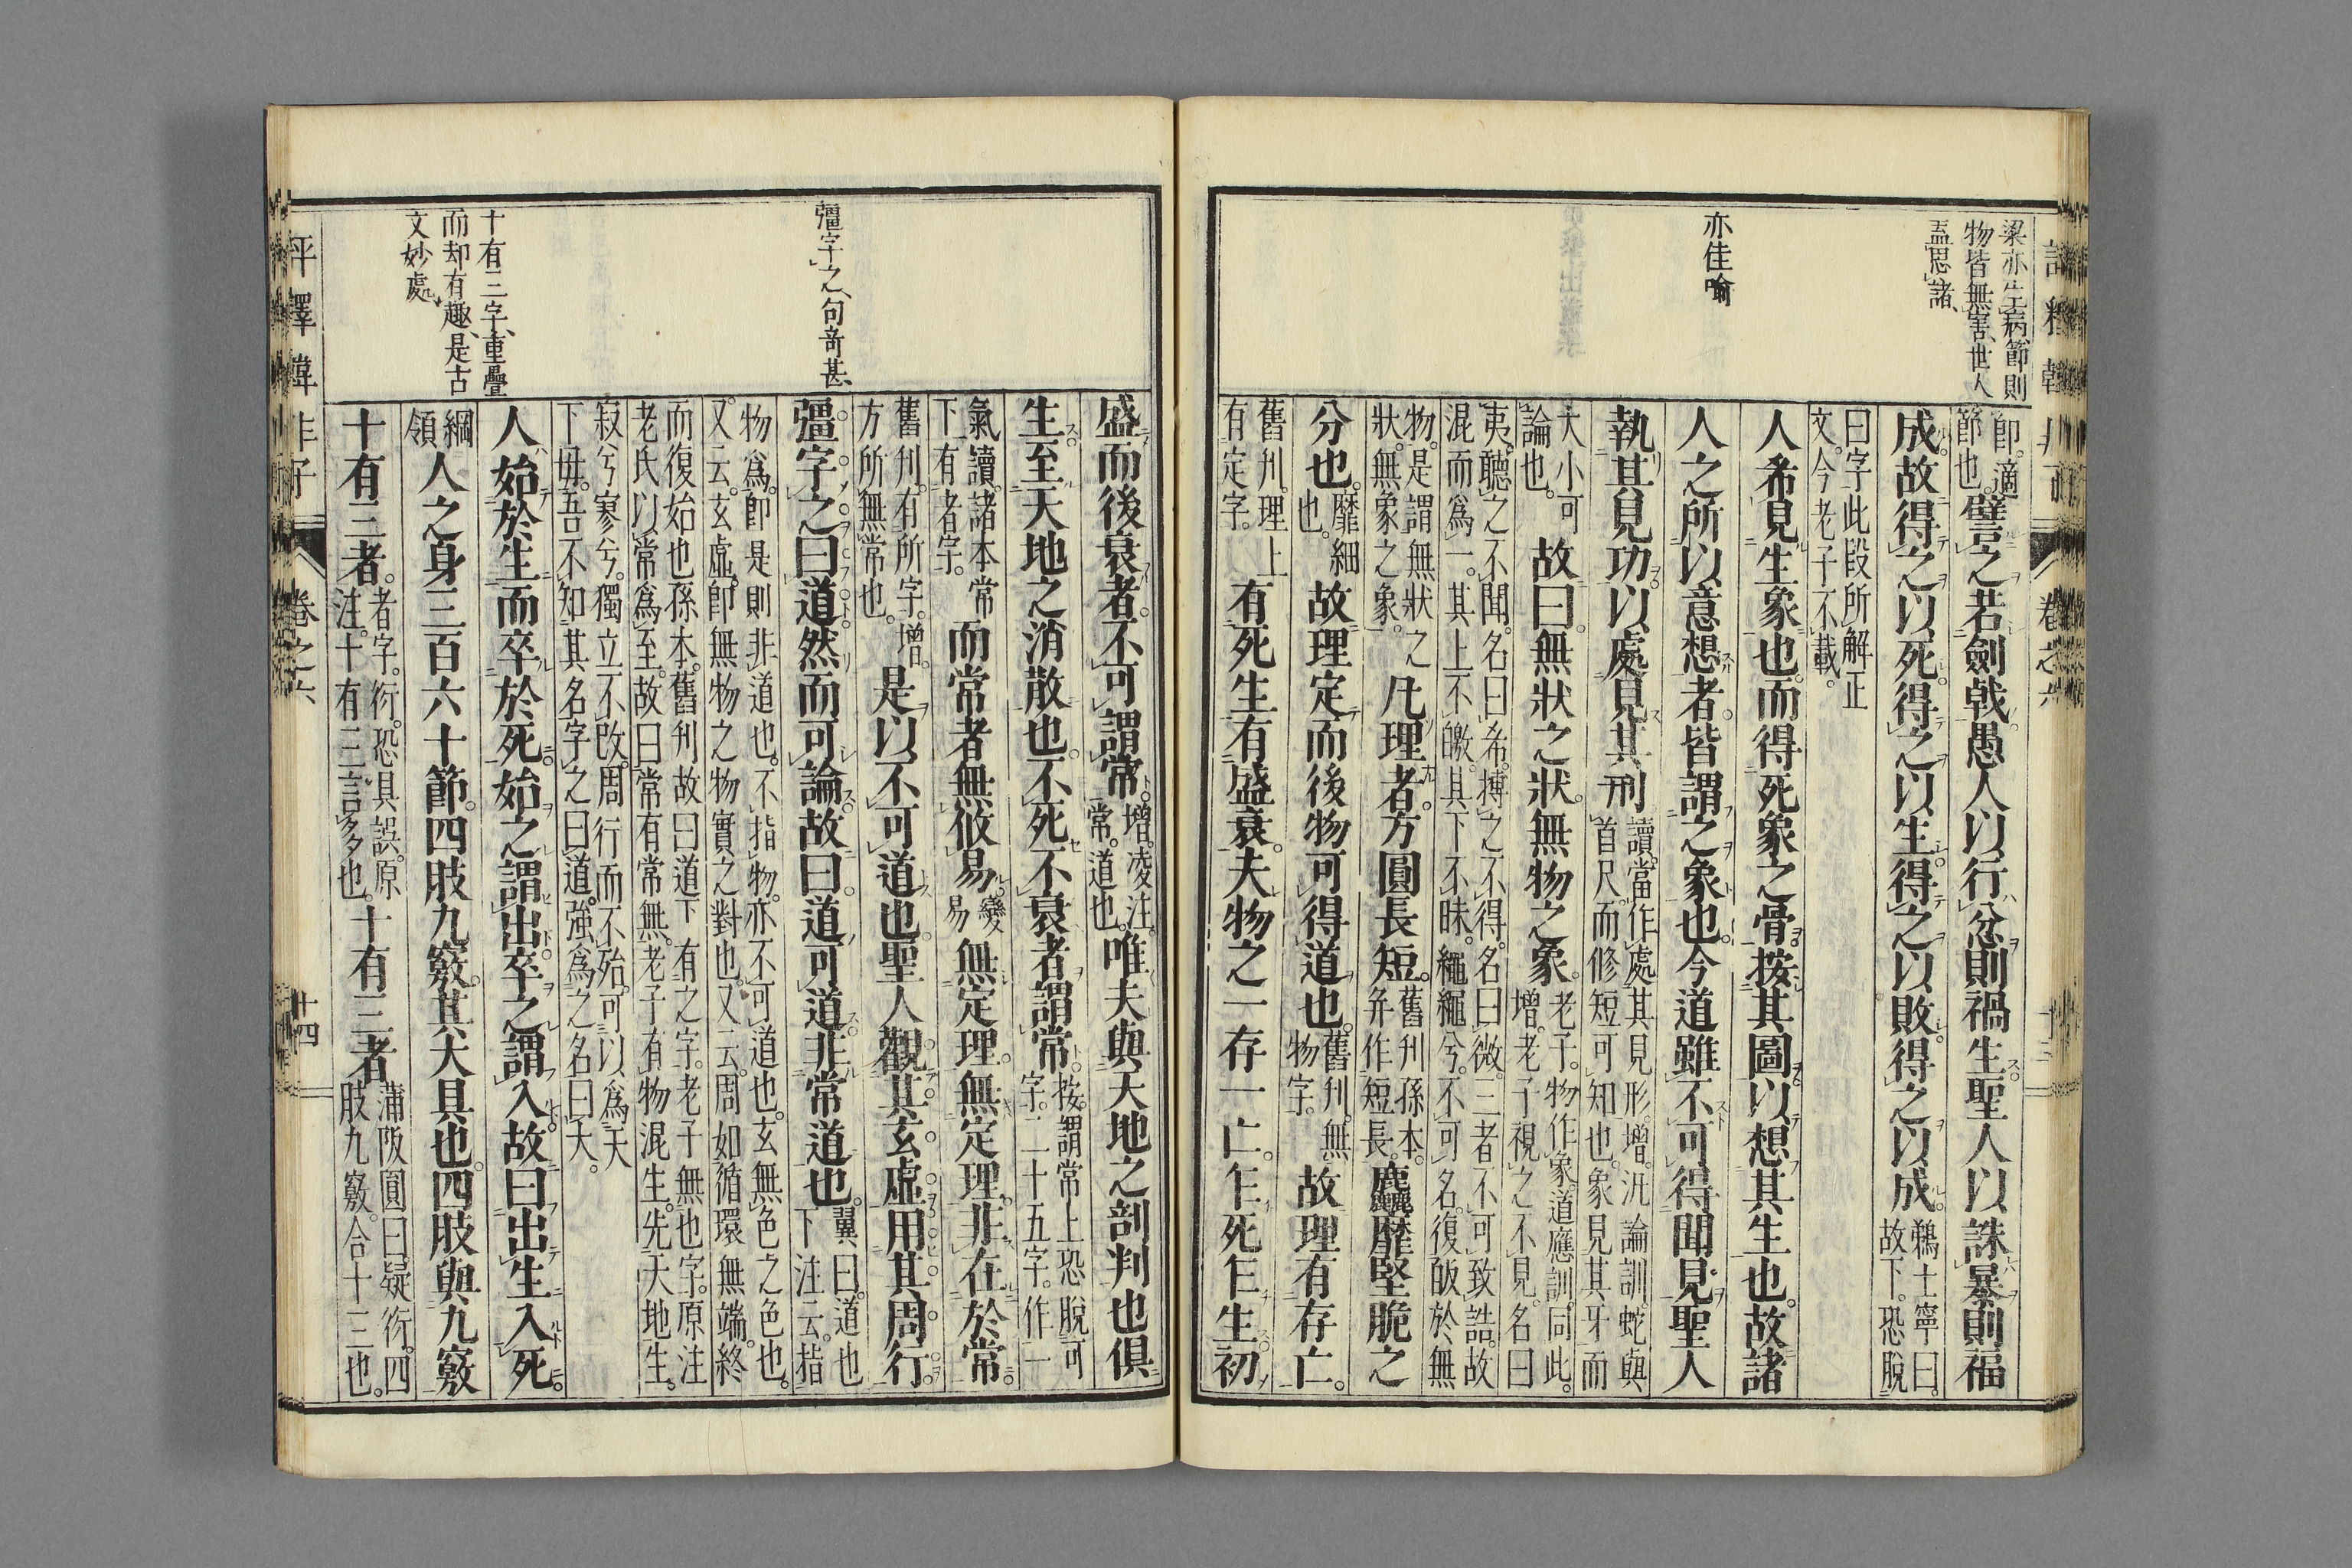 梁亦生病節則
物皆無害世人
盍思諸
亦佳喻
卽適
節也譬之若劍戟愚人以行忿則禍生聖人以誅暴則福
成故得之以死得之以生得之以敗得之以成鵜士寧曰
故下恐脫
曰字此段所解正
文今老子不載
人希見生象也而得死象之骨按其圖以想其生也故諸
人之所以意想者皆謂之象也今道雖不可得聞見聖人
執其見功以處見其刑讀當作處其見形增汎論訓蛇與
首尺而脩短可知也象見其牙而
大小可
論也故曰無狀之狀無物之象老子物作象道應訓同此
增老子視之不見名曰
夷聽之不聞名曰希搏之不得名曰微三者不可致詰故
混而爲一其上不皦其下不昧繩繩兮不可名復皈於無
物是謂無狀之
狀無象之象凡理者方圓長短舊刋孫本
弁作短長麤靡堅脆之
分也靡細
也故理定而後物可得道也舊刋無
物字故理有存亡
舊刋理上
有定字有死生有盛衰夫物之一存一亡乍死乍生初
彊字之句奇甚
十有二字重疊
而却有趣是古
文妙處
盛而後衰者不可謂常增凌注
常道也唯夫與天地之剖判也俱
生至天地之消散也不死不衰者謂常按謂常上恐脫可
字二十五字作一
氣讀諸本常
下有者字而常者無攸易變
易無定理無定理非在於常
舊刋有所字增
方所無常也是以不可道也聖人觀其玄虛用其周行
彊字之曰道然而可論故曰道可道非常道也翼曰道也
下注云指
物爲卽是則非道也不指物亦不可道也玄無色之色也
又云玄虛卽無物之物實之對也又云周如循環無端終
而復始也孫本舊刋故曰道下有之字老子無也字原注
老氏以常爲至故曰常有常無老子有物混生先天地生
寂兮寥兮獨立不改周行而不殆可以爲天
下母吾不知其名字之曰道強爲之名曰大
人始於生而卒於死始之謂出卒之謂入故曰出生入死
綱
領人之身三百六十節四肢九竅其大具也四肢與九竅
十有三者者字衍恐具誤原
注十有三言多也十有三者蒲阪圓曰疑衍四
肢九竅合十三也
評釋韓非子
卷之六
十四